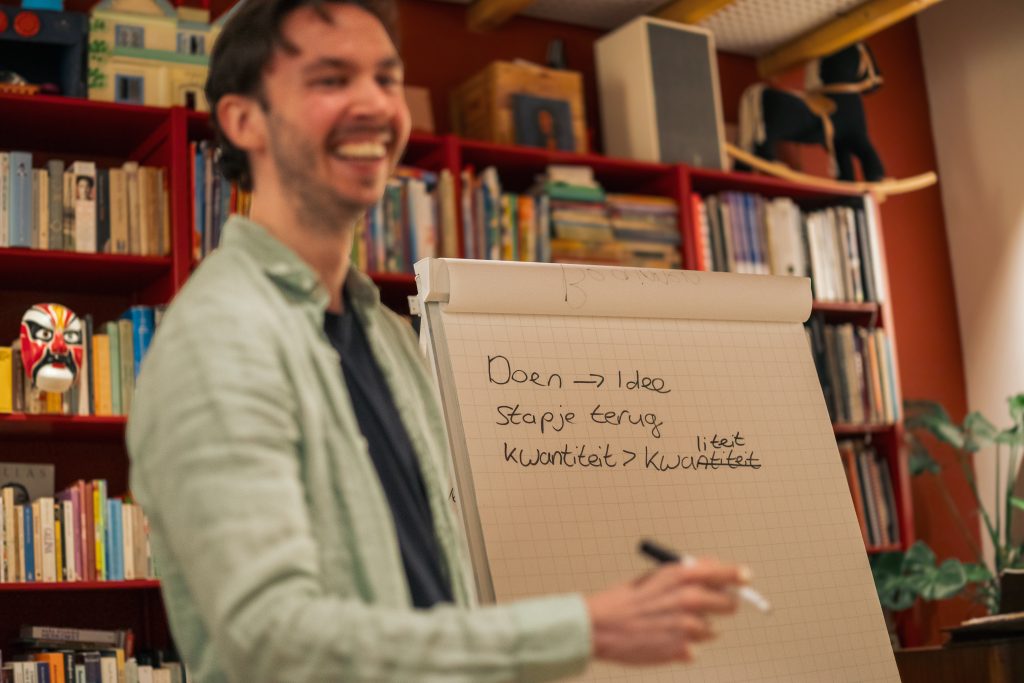 Doen → Idee
stapje terug
kwantiteit > kwaliteit